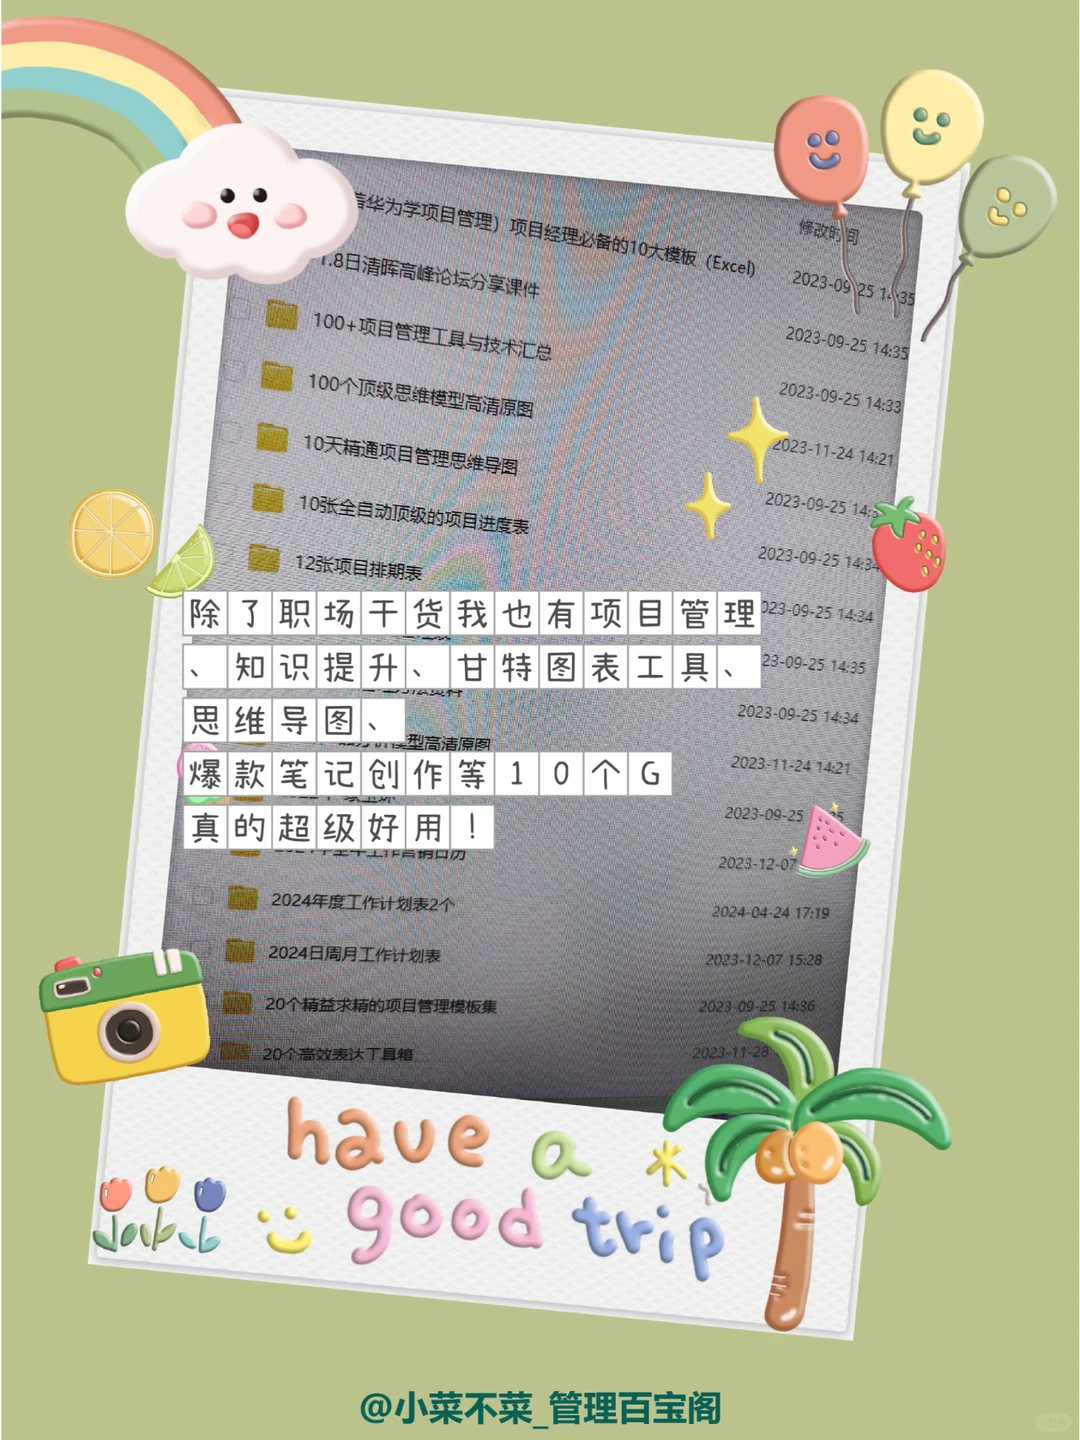 着华为学项目管理）项目经理必备的10大模板（Excel）
修改时间
2023-09-25 14:35
1.8日清晖高峰论坛分享课件
2023-09-25 14:35
100+项目管理工具与技术汇总
2023-09-25 14:33
100个顶级思维模型高清原图
2023-11-24 14:21
10天精通项目管理思维导图
2023-09-25 14:3
10张全自动顶级的项目进度表
2023-09-25 14:34
12张项目排期表
023-09-25 14:34
除了职场干货我也有项目管理
23-09-25 14:35
、知识提升、甘特图表工具、
2023-09-25 14:34
思维导图、
型高清原图
2023-11-24 14:21
爆款笔记创作等10个G
2023-09-25
真的超级好用！
2023-12-07
2024年度工作计划表2个
2024-04-24 17:19
2024日周月工作计划表
2023-12-07 15:28
20个精益求精的项目管理模板集
2023-09-25 14:36
20个高效表达工具箱
2023-11-28
have a
good trip
@小菜不菜_管理百宝阁